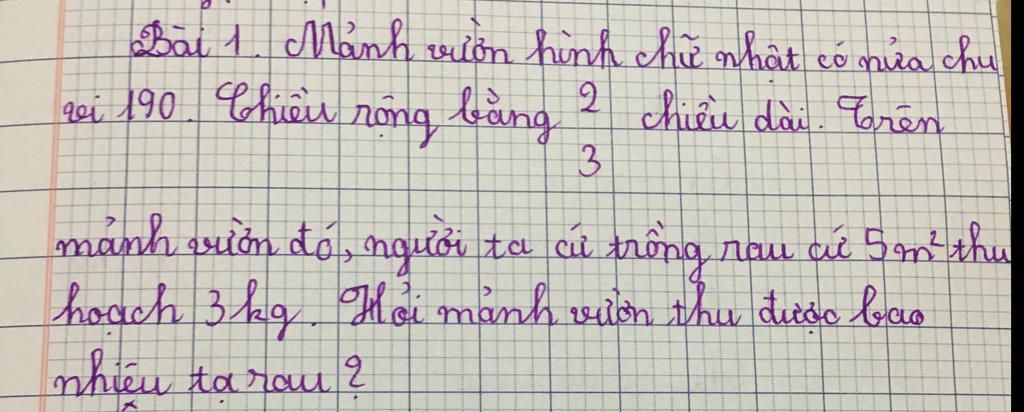 Bài 1. Mảnh vườn hình chữ nhật có nửa chu
vi 190. Chiều rộng bằng 2 chiều dài. Trên
3
mảnh vườn đó, người ta cứ trồng rau cứ 5m² thu
hoạch 3kg. Hỏi mảnh vườn thu được bao
nhiêu tạ rau?